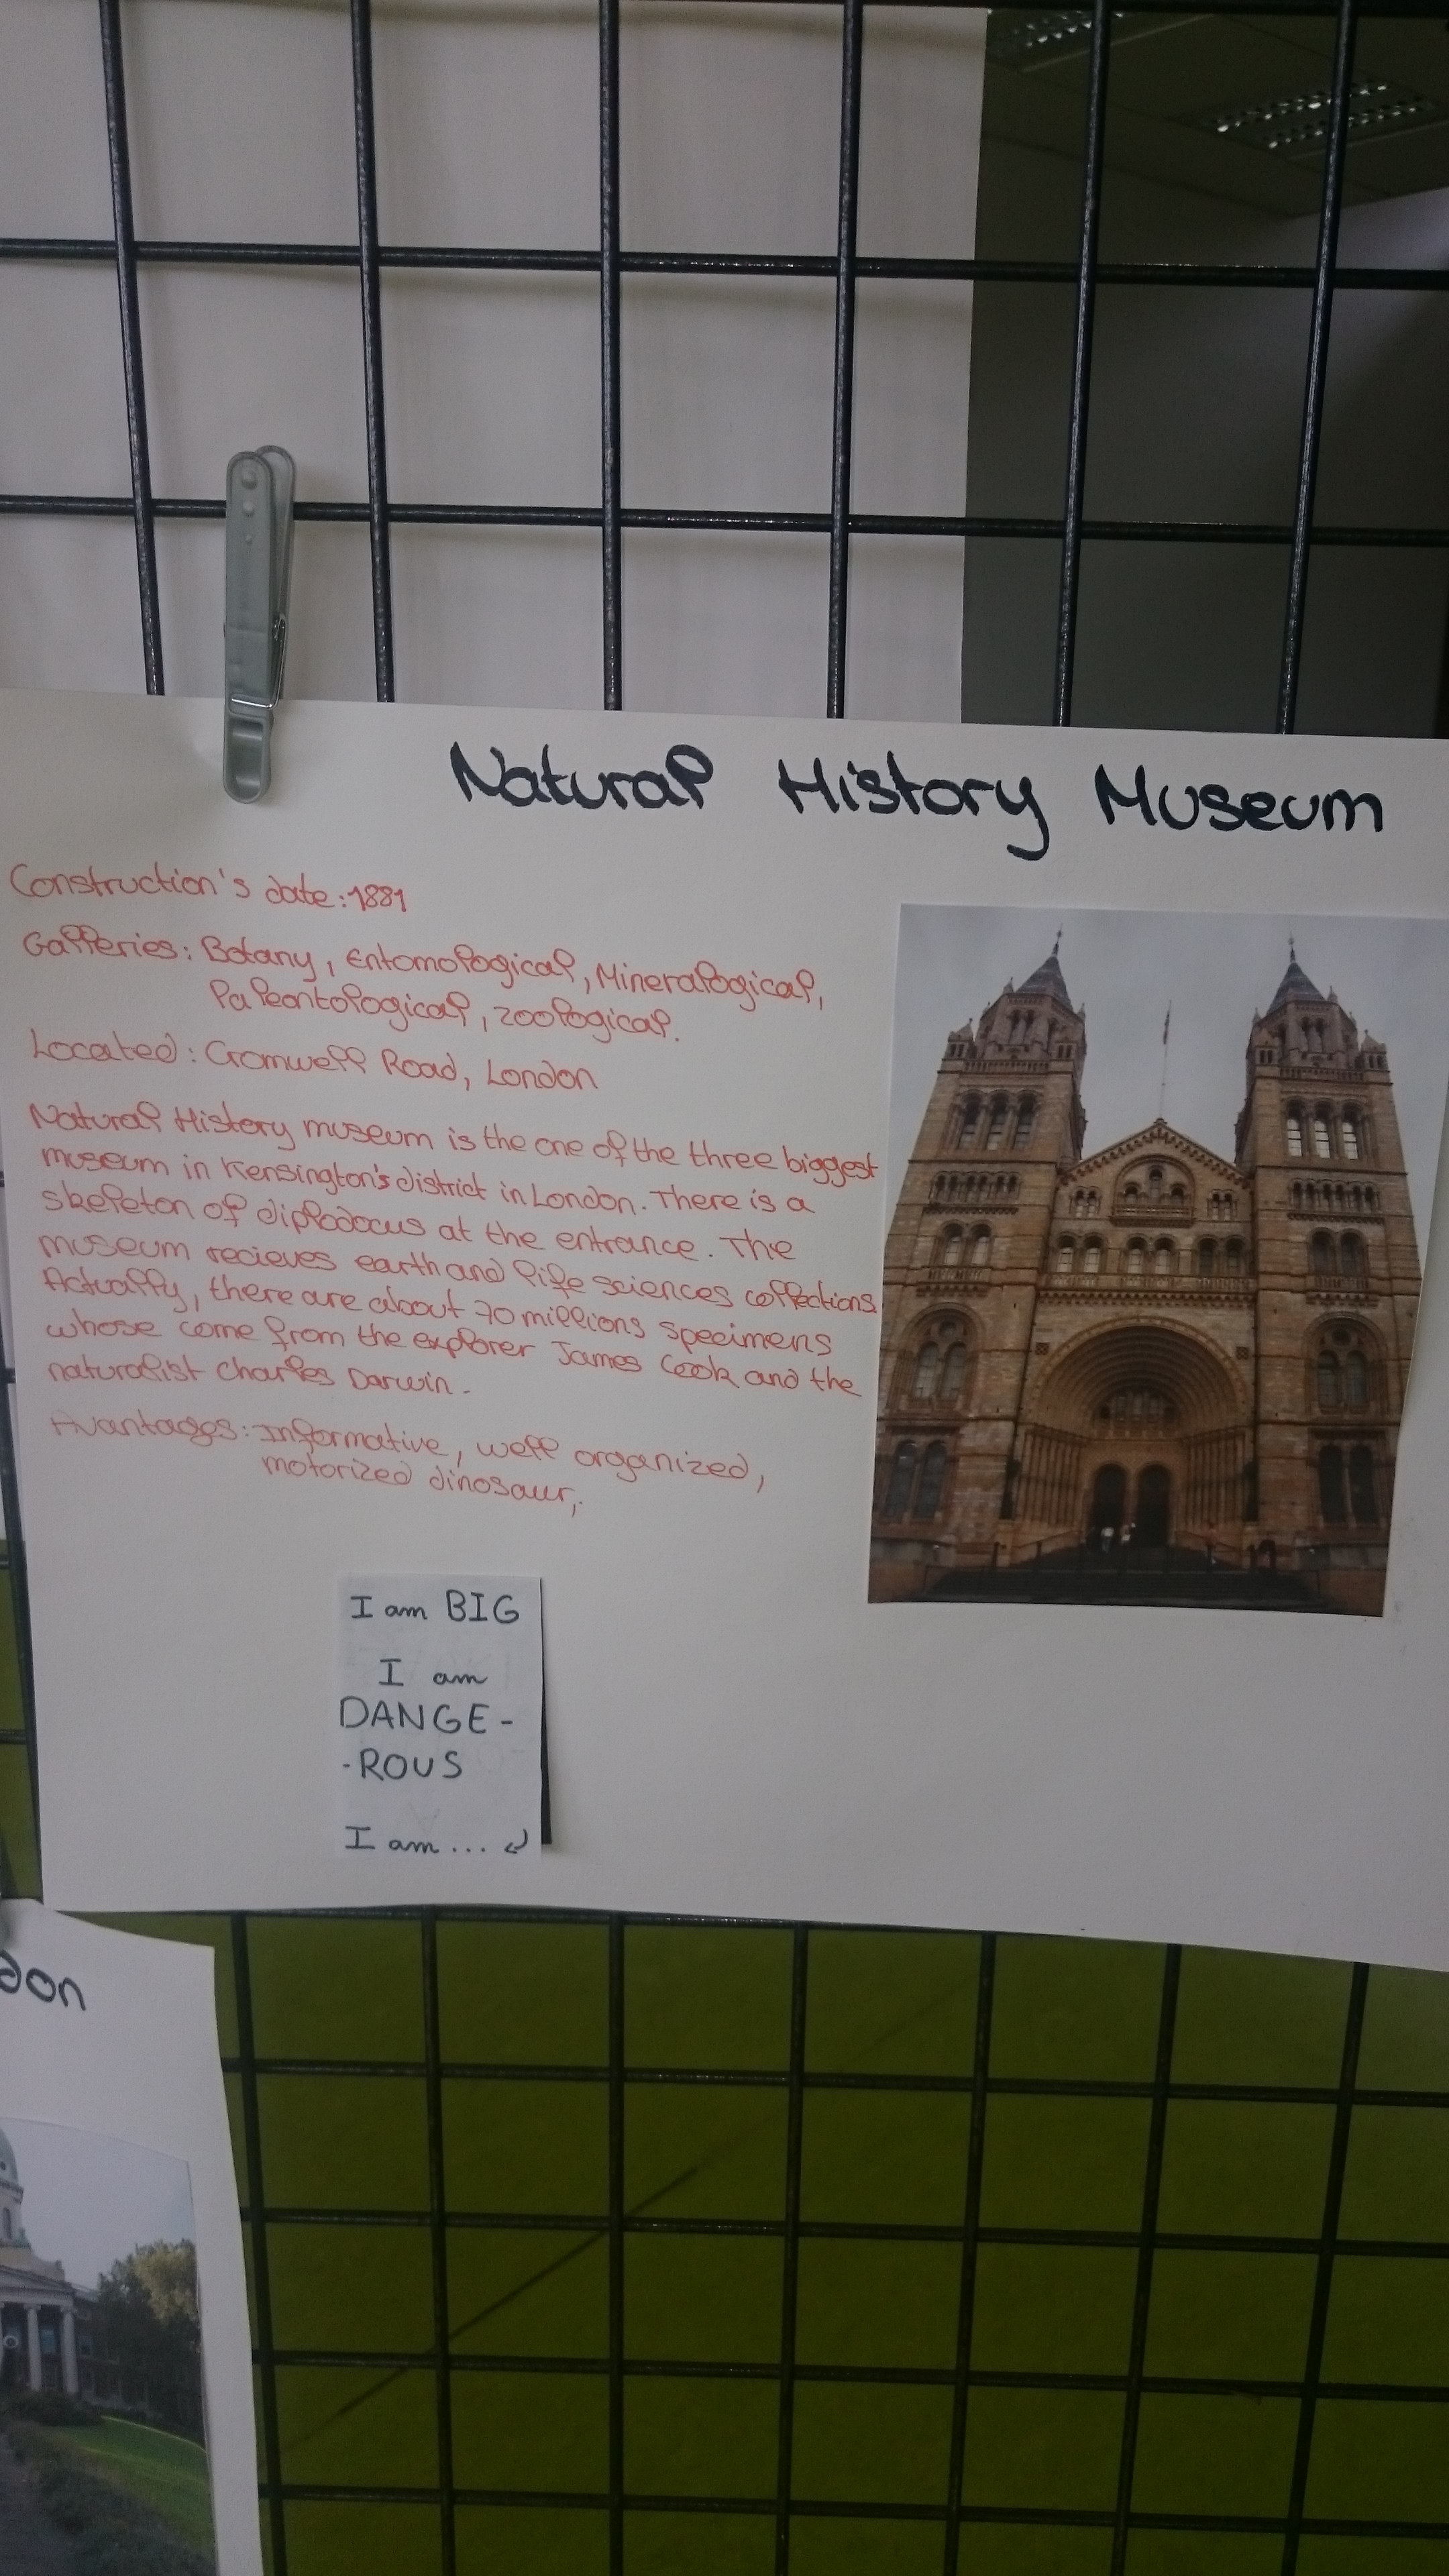 Natural History Museum
Construction's date: 1881
Galleries: Botany, Entomological, Mineralogical,
Paleontological, zoological.
Located: Cromwell Road, London
Natural History museum is the one of the three biggest
museum in Kensington's district in London. There is a
skeleton of diplodocus at the entrance. The
museum recieves earth and life sciences collections.
Actually, there are about 70 millions specimens
whose come from the explorer James Cook and the
naturalist Charles Darwin.
Avantages: Informative, well organized,
motorized dinosaur,
I am BIG
I am
DANGE-
-ROUS
I am...
don